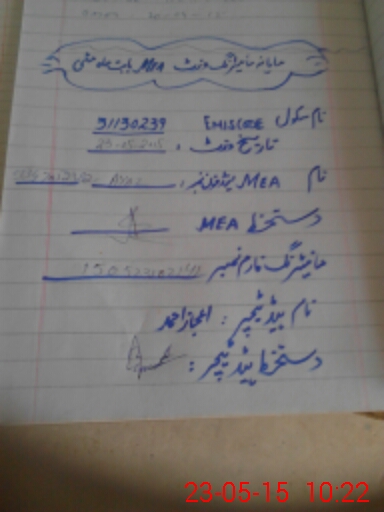 ماہانہ مانیٹرنگ وزٹ MEA بابت ماہ مئی
نام سکول EMISCODE 31130239
تاریخ وزٹ : 23-05-2015
نام MEA
دستخط MEA
مانیٹرنگ فارم نمبر
نام ہیڈ ٹیچر : اعجاز احمد
دستخط ہیڈ ٹیچر :
23-05-15 10:22